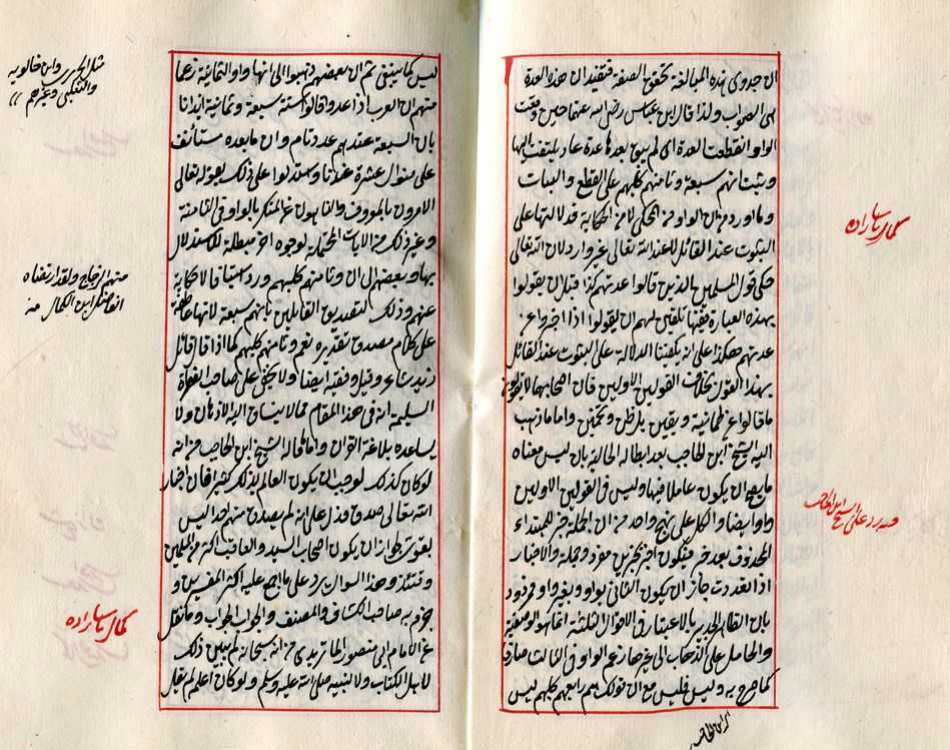 ان جدوى هذه المبالغة تحقيق الصفة فيفيد ان هذه العدة
هي الصواب ولذا قال ابن عباس رضى الله عنهما حين وقعت
الواو انقطعت العدة اى لم يبق بعدها عدة عاد يلتفت اليها
وثبت انهم سبعة وثامنهم كلبهم على القطع والبتات
وما اورد من ان الواو من المحكى لا من الحكاية فدلالتها على
الثبوت عند القائل لا عند الله تعالى غير وارد لان الله تعالى
حكى قول المسلمين الذين قالوا عدتهم كذا قبل ان يقولوا
بهذه العبارة ففيها تلقين لهم ان يقولوا اذا اخبروا عن
عدتهم هكذا على انه يكفينا الدلالة على الثبوت عند القائل
بهذا القول بخلاف القولين الاولين فان اصحابهما لا يقولون
ما قالوا عن طمانية ويقين بل ظن وتخمين واما ما ذهب
اليه الشيخ ابن الحاجب بعد ابطاله الحالية بان ليس معناه
ما يصح ان يكون عاملا فيها وليس فى القولين الاولين
واو ايضا والكل على نهج واحد من ان الجملة خبر للمبتداء
المحذوف بعد خبر فيكون اخبر بخبرين مفرد وجملة والاخبار
اذا تعددت جاز ان يكون الثانى بواو وبغير واو فمردود
بان الظاهر الجدير بالاعتبار فى الاقوال الثلثة انما هو الوصفية
والحامل على الذهاب الى غيرها صارفة الواو فى الثالث صارفا
كما صرح به وليس فليس مع ان قولك هم رابعهم كلبهم ليس
كمال پاشا زاده
فيه رد على الشيخ ابن الحاجب
ابن الحاجب
ليس كما ينبغى ثم ان بعضهم ذهبوا الى انها واو الثمانية زعما
منهم ان العرب اذا عدوا قالوا ستة سبعة وثمانية ايذانا
بان السبعة عندهم عدد تام وان ما بعده مستأنف
على منوال عشرة عندنا واستدلوا على ذلك بقوله تعالى
الآمرون بالمعروف والناهون عن المنكر بالواو فى الثامنة
وغير ذلك من الايات المحتملة لوجوه اخر مبطلة للاستدلال
بها وبعضهم الى ان وثامنهم كلبهم ورد استينافا لا حكاية
عنهم وذلك لتصديق القائلين بانهم سبعة لانها عاطفة
على كلام مصدق تقديره نعم وثامنهم كلبهم كما اذا قال قائل
زيد شاعر وقيل وفقيه ايضا ولا يخفى على صاحب الفطرة
السليمة انه فى هذا المقام مما لا ينساق اليه الاذهان ولا
يساعده بلاغة القران واما ما قاله الشيخ ابن الحاجب من انه
لو كان كذلك لوجب ان يكون العالم بذلك كثيرا فان اخبار
الله تعالى صدق فدل على انه لم يصدق منهم احد ليس
بقوى لجواز ان يكون اصحاب السيد والعاقب اكثر من المسلمين
وقتئذ وهذا السوال يرد على ما اجمع عليه اكثر المفسرين و
جزم به صاحب الكشاف والمصنف والجواب الجواب وما نقل
عن الامام ابى منصور الماتريدى من انه سبحانه لم يبين ذلك
لاهل الكتاب ولا لنبيه صلى الله عليه وسلم ولو كان اعلم لم يقل
مثل الحريرى وابن خالويه
والثعلبى وغيرهم
منهم الزجاج ولقد ارتضاه
الفاضل ابن الكمال منه
كمال پاشا زاده